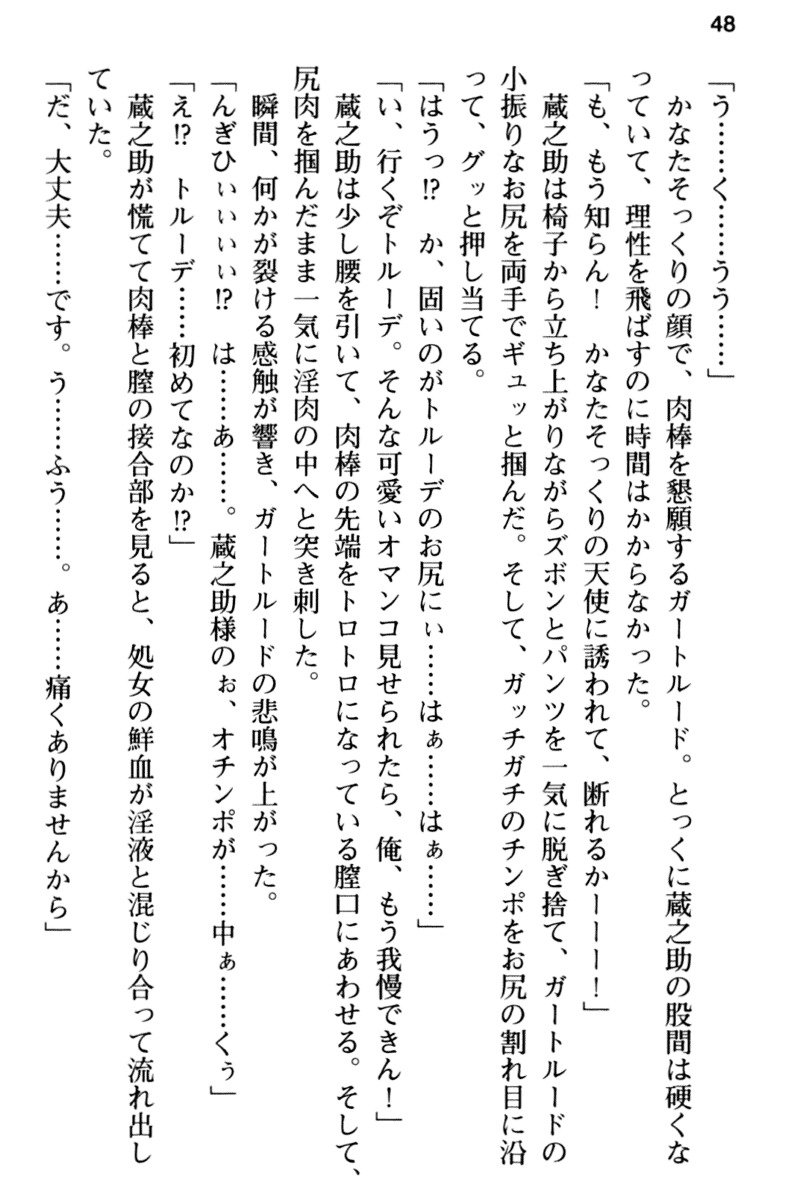 48
「う……く……うう……」
かなたそっくりの顔で、肉棒を懇願するガートルード。とっくに蔵之助の股間は硬くな
っていて、理性を飛ばすのに時間はかからなかった。
「も、もう知らん！　かなたそっくりの天使に誘われて、断れるかーーー！」
蔵之助は椅子から立ち上がりながらズボンとパンツを一気に脱ぎ捨て、ガートルードの
小振りなお尻を両手でギュッと掴んだ。そして、ガッチガチのチンポをお尻の割れ目に沿
って、グッと押し当てる。
「はうっ!?　か、固いのがトルーデのお尻にぃ……はぁ……はぁ……」
「い、行くぞトルーデ。そんな可愛いオマンコ見せられたら、俺、もう我慢できん！」
蔵之助は少し腰を引いて、肉棒の先端をトロトロになっている膣口にあわせる。そして、
尻肉を掴んだまま一気に淫肉の中へと突き刺した。
瞬間、何かが裂ける感触が響き、ガートルードの悲鳴が上がった。
「んぎひぃぃぃぃ!?　は……あ……。蔵之助様のぉ、オチンポが……中ぁ……くぅ」
「え!?　トルーデ……初めてなのか!?」
蔵之助が慌てて肉棒と膣の接合部を見ると、処女の鮮血が淫液と混じり合って流れ出し
ていた。
「だ、大丈夫……です。う……ふう……。あ……痛くありませんから」